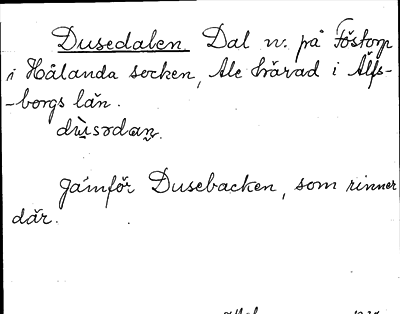 Dusedalen Dal n. på Föstorp
i Hålanda socken, Ale härad i Älfs-
-borgs län.
dùsədaṉ.
Jämför Dusebacken, som rinner
där.